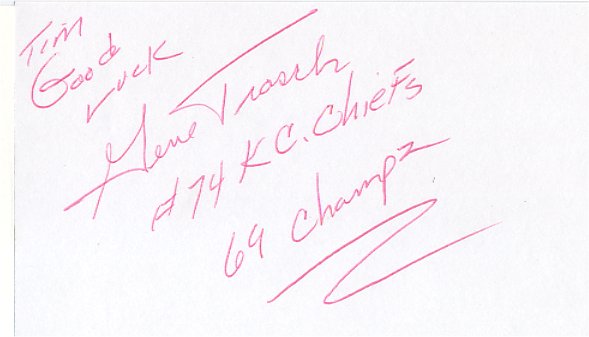 Tim
Good
Luck
Gene Trosch
#74 K C. Chiefs
69 Champz